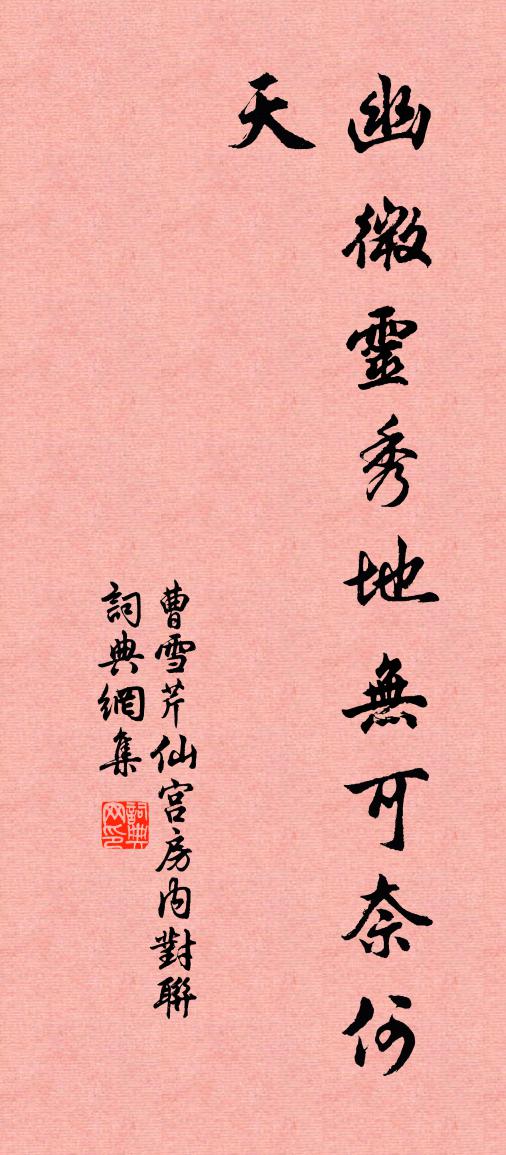 幽微靈秀地無可奈何
天
曹雪芹仙宫房内對聯
詞典網集
詞典
网印